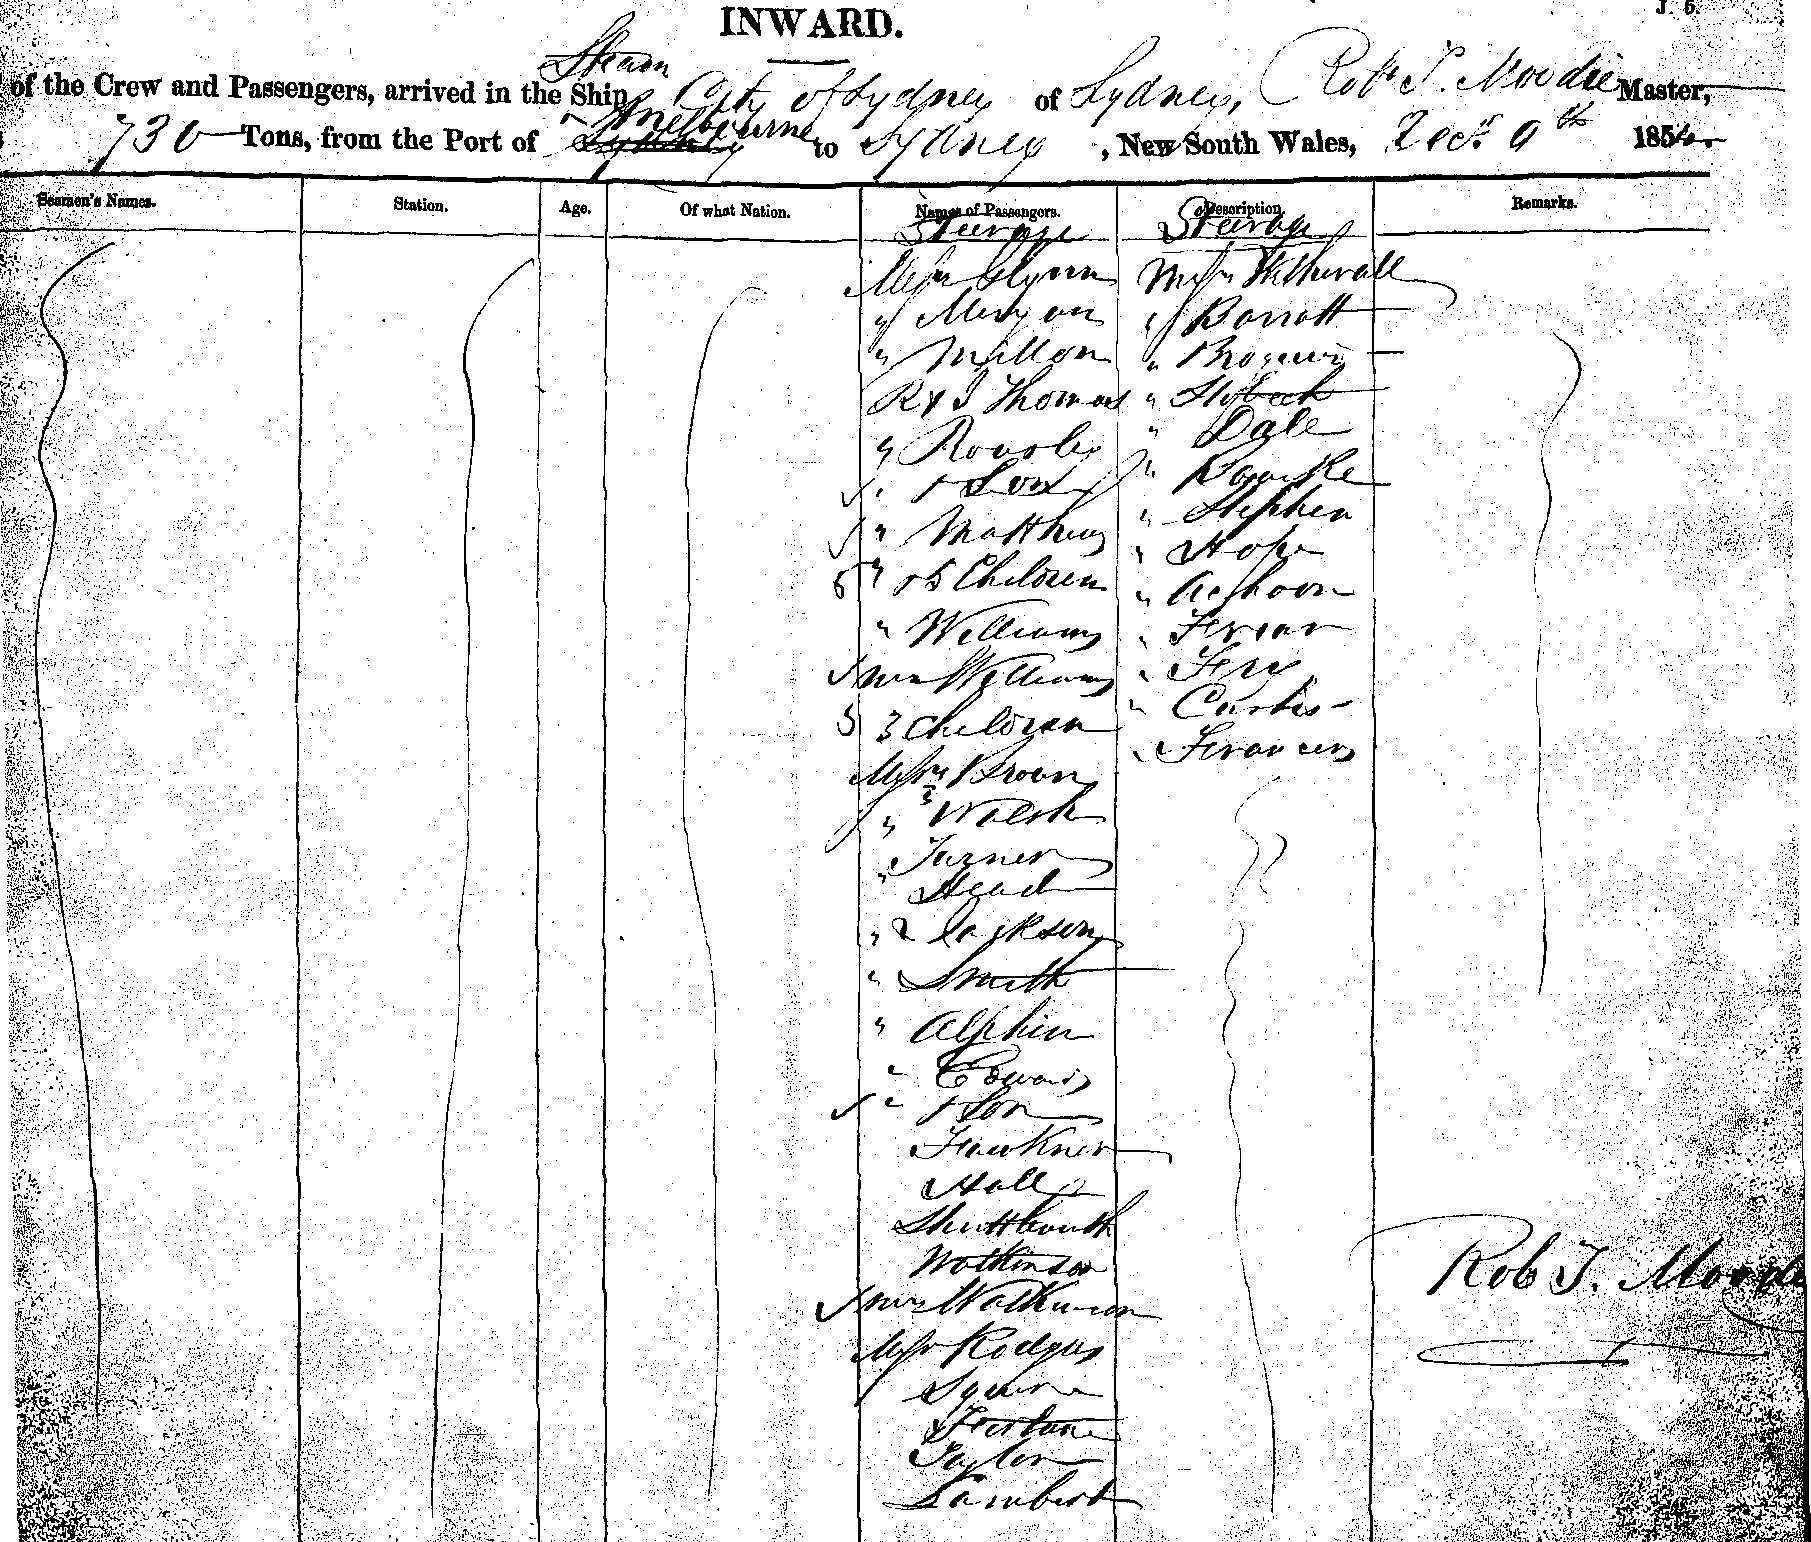 J. 5.
INWARD.
Steam
of the Crew and Passengers, arrived in the Ship City of Sydney of Sydney, Robt T. Moodie Master,
Melbourne
730 Tons, from the Port of Sydney to Sydney, New South Wales, Decr 9th 1854.
Seamen's Names. Station. Age. Of what Nation. Names of Passengers. Description Remarks.
Steerage Steerage
Messrs Glynn
" Morgan
" Mellon
R & J Thomas
" Rowsley
" & Son
" Matthews
5 " & 5 Children
" Williams
Mrs Williams
3 3 Children
Messrs Brown
" Walsh
" Turner
Head
" 2 Jackson
" Smith
" Alphin
" Edwards
" & Son
Fawkner
Hall
Watkinson
Mrs Watkinson
Messrs Rodgers
Squire
Taylor
Lambert
Messrs Witherall
" Barratt
"
"
" Dale
"
" Stephen
" Hope
"
"
"
" Curtis
" Francis
Rob T. Moodie